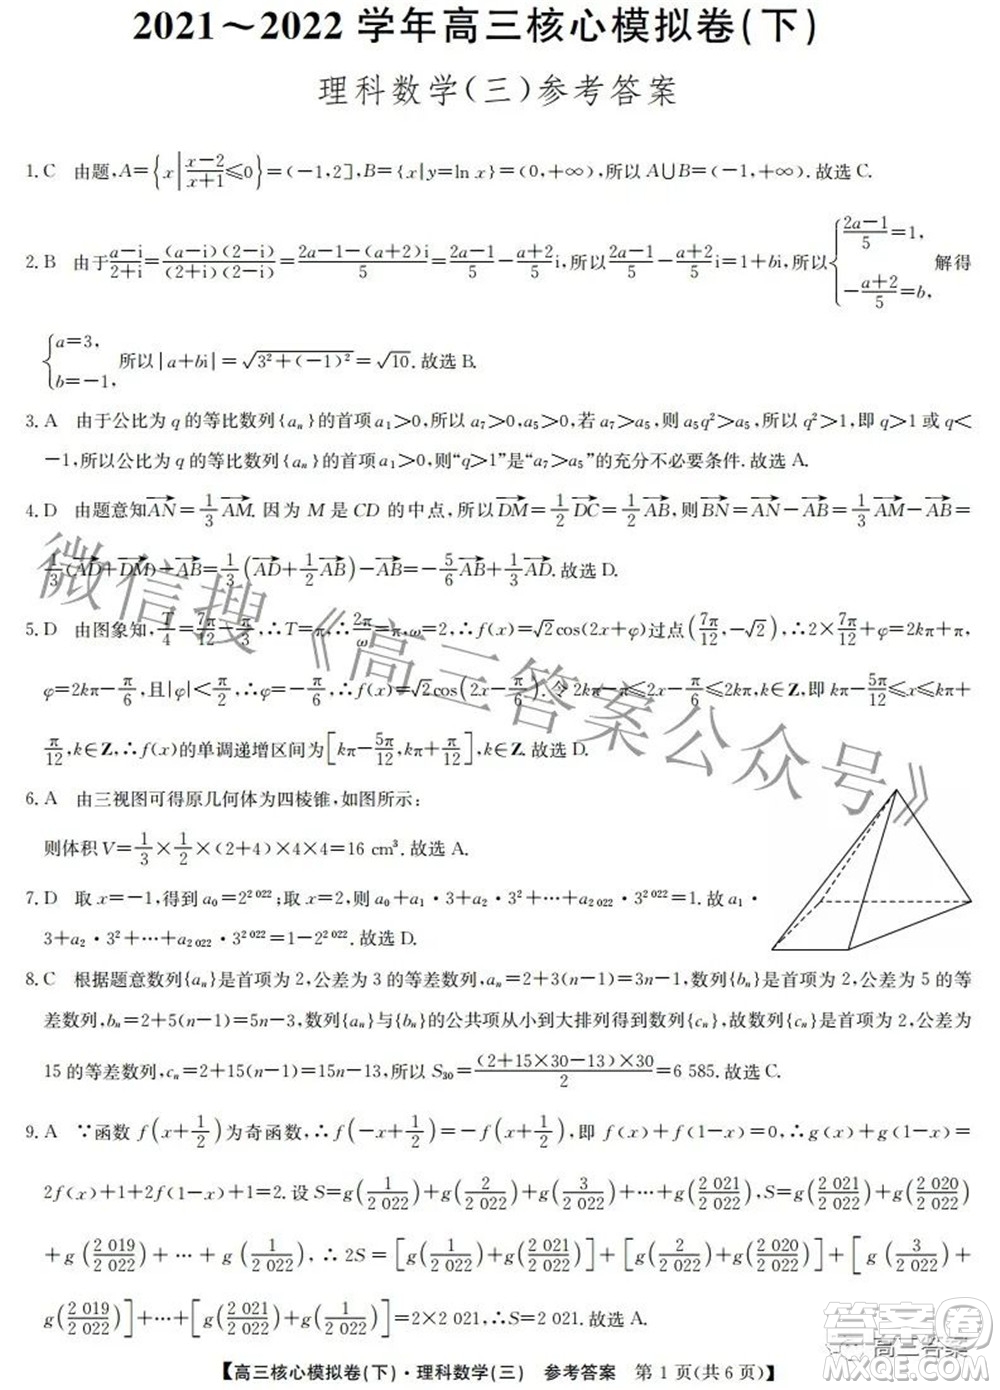 2021～2022 学年高三核心模拟卷(下)
理科数学(三)参考答案
1.C　由题,A={x|(x-2)/(x+1)≤0}=(-1,2],B={x|y=ln x}=(0,+∞),所以 A∪B=(-1,+∞).故选 C.
2.B　由于(a-i)/(2+i)=(a-i)(2-i)/(2+i)(2-i)=(2a-1-(a+2)i)/5=(2a-1)/5-(a+2)/5 i,所以(2a-1)/5-(a+2)/5 i=1+bi,所以{(2a-1)/5=1, -(a+2)/5=b, 解得
{a=3, b=-1, 所以|a+bi|=√(3²+(-1)²)=√10.故选 B.
3.A　由于公比为 q 的等比数列{aₙ}的首项 a₁>0,所以 a₇>0,a₅>0,若 a₇>a₅,则 a₅q²>a₅,所以 q²>1,即 q>1 或 q<
-1,所以公比为 q 的等比数列{aₙ}的首项 a₁>0,则“q>1”是“a₇>a₅”的充分不必要条件.故选 A.
4.D　由题意知AN→=1/3 AM→.因为 M 是 CD 的中点,所以DM→=1/2 DC→=1/2 AB→,则BN→=AN→-AB→=1/3 AM→-AB→=
1/3(AD→+DM→)-AB→=1/3(AD→+1/2 AB→)-AB→=-5/6 AB→+1/3 AD→.故选 D.
5.D　由图象知,T/4=7π/12-π/3,∴T=π,∴2π/ω=π,ω=2,∴f(x)=√2cos(2x+φ)过点(7π/12,-√2),∴2×7π/12+φ=2kπ+π,
φ=2kπ-π/6,且|φ|<π/2,∴f(x)=√2cos(2x-π/6).令 2kπ-π≤2x-π/6≤2kπ,k∈Z,即 kπ-5π/12≤x≤kπ+
π/12,k∈Z,∴f(x)的单调递增区间为[kπ-5π/12,kπ+π/12],k∈Z.故选 D.
6.A　由三视图可得原几何体为四棱锥,如图所示:
则体积 V=1/3×1/2×(2+4)×4×4=16 cm³.故选 A.
7.D　取 x=-1,得到 a₀=2^2 022;取 x=2,则 a₀+a₁·3+a₂·3²+…+a₂ ₀₂₂·3^2 022=1.故 a₁·
3+a₂·3²+…+a₂ ₀₂₂·3^2 022=1-2^2 022.故选 D.
8.C　根据题意数列{aₙ}是首项为 2,公差为 3 的等差数列,aₙ=2+3(n-1)=3n-1,数列{bₙ}是首项为 2,公差为 5 的等
差数列,bₙ=2+5(n-1)=5n-3,数列{aₙ}与{bₙ}的公共项从小到大排列得到数列{cₙ},故数列{cₙ}是首项为 2,公差为
15 的等差数列,cₙ=2+15(n-1)=15n-13,所以 S₃₀=(2+15×30-13)×30/2=6 585.故选 C.
9.A　∵函数 f(x+1/2)为奇函数,∴f(-x+1/2)=-f(x+1/2),即 f(x)+f(1-x)=0,∴g(x)+g(1-x)=
2f(x)+1+2f(1-x)+1=2.设 S=g(1/2 022)+g(2/2 022)+g(3/2 022)+…+g(2 021/2 022),S=g(2 021/2 022)+g(2 020/2 022)
+g(2 019/2 022)+…+g(1/2 022),∴2S=[g(1/2 022)+g(2 021/2 022)]+[g(2/2 022)+g(2 020/2 022)]+[g(3/2 022)+
g(2 019/2 022)]+…+[g(2 021/2 022)+g(1/2 022)]=2×2 021,∴S=2 021.故选 A.
【高三核心模拟卷(下)·理科数学(三)　参考答案　第 1 页(共 6 页)】
微信搜《高三答案公众号》
高三答案
答案圈
MXQE.COM